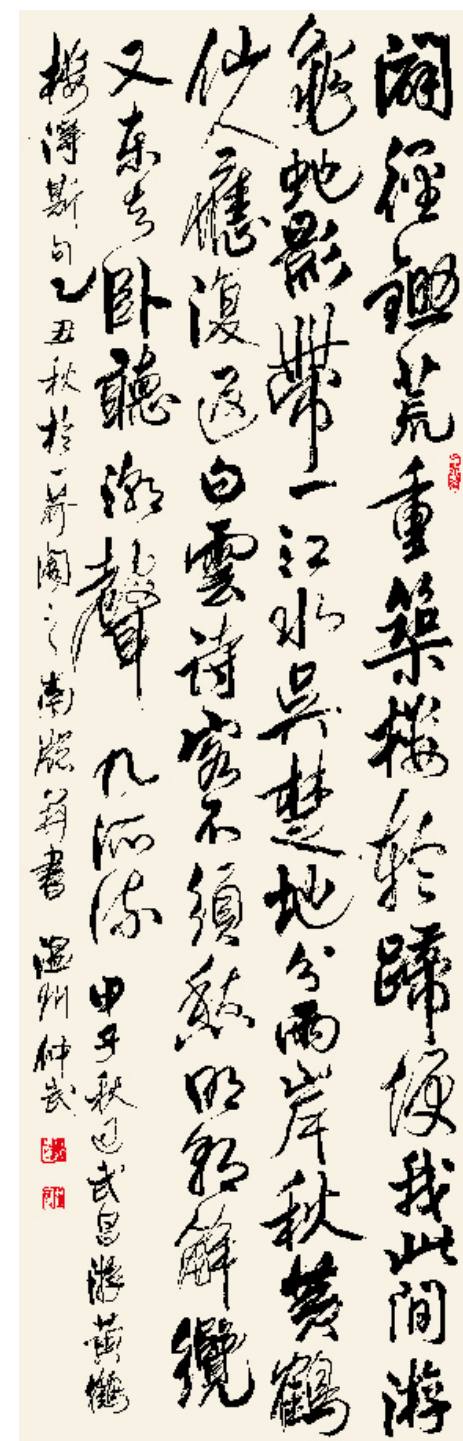 闢徑鋤荒重築樓輪蹄復我此間游
龜蛇影帶一江水吳楚地分兩岸秋黃鶴
仙人應復返白雲詩客不須愁明朝解纜
又東去臥聽潮聲九派流甲子秋過武昌漫黃鶴
樓得斯句乙丑秋於一芥閣之南窗并書溫州仲武